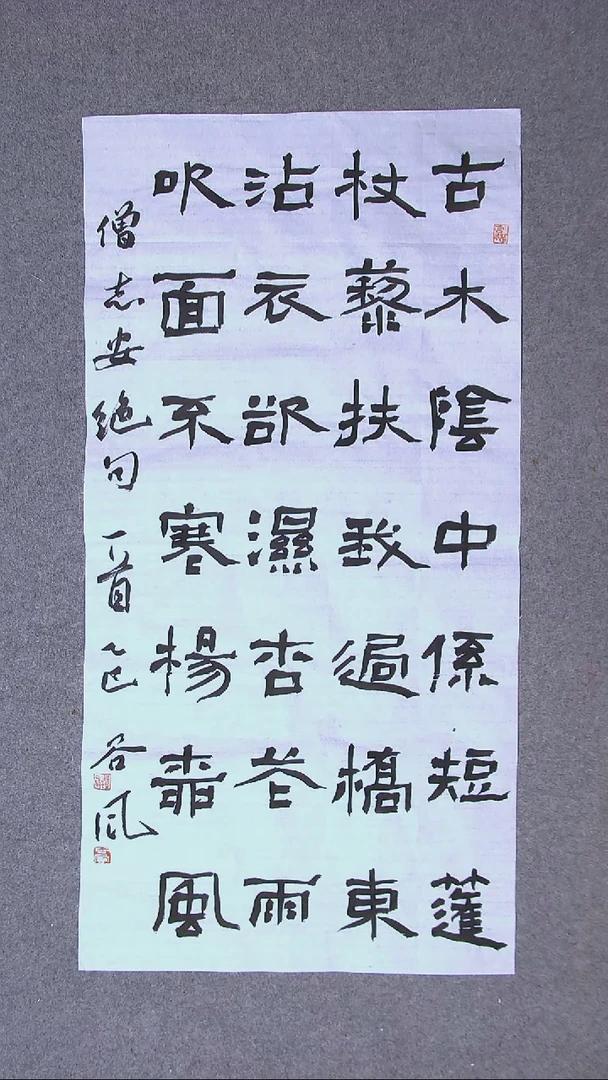 古木陰中係短蓬
杖藜扶我過橋東
沾衣欲濕杏花雨
吹面不寒楊柳風
僧志安絶句一首乙巳谷風